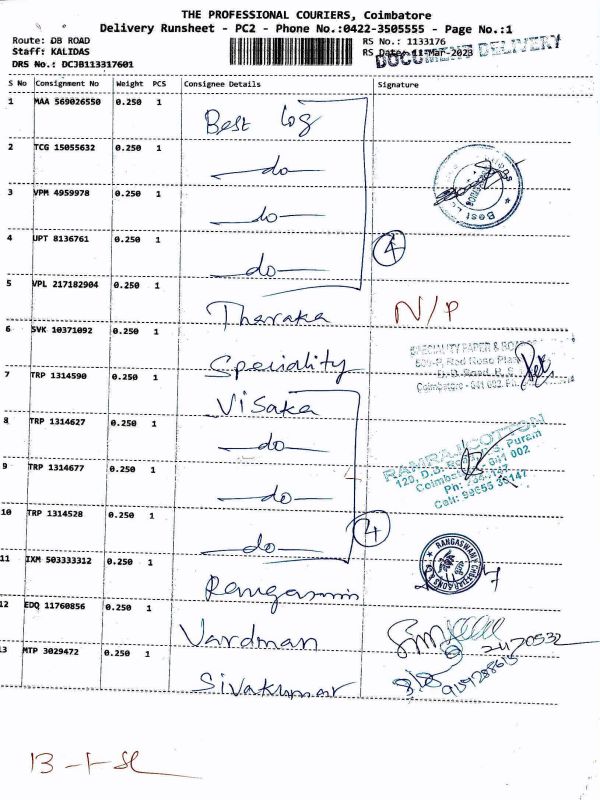 THE PROFESSIONAL COURIERS, Coimbatore
Delivery Runsheet - PC2 - Phone No.:0422-3505555 - Page No.:1
Route: DB ROAD
RS No.: 1133176
Staff: KALIDAS
RS Date: 11-Mar-2023
DOCUMENT DELIVERY
DRS No.: DCJB113317601
S No Consignment No Weight PCS Consignee Details Signature
1 MAA 569026550 0.250 1 Best log
2 TCG 15055632 0.250 1 —do—
3 VPM 4959978 0.250 1 —do—
4 UPT 8136761 0.250 1 —do—
4
5 VPL 217182904 0.250 1 Tharaka N/P
6 SVK 10371092 0.250 1 Speciality
SPECIALITY PAPER & BOARD
D.B. Road, R.S.
Coimbatore - 641 002. Ph:
7 TRP 1314590 0.250 1 Visaka
8 TRP 1314627 0.250 1 —do—
RAMRAJ COTTON
120, D.B. Puram
Coimbatore 641 002
Ph:
Cell: 99655 35147
9 TRP 1314677 0.250 1 —do—
10 TRP 1314528 0.250 1 —do—
4
11 IXM 503333312 0.250 1 Rangasami
RANGASWAMY CHETTIAR & SONS
12 EDQ 11760856 0.250 1 Vardman
2470532
13 MTP 3029472 0.250 1 Sivakumar
13 -